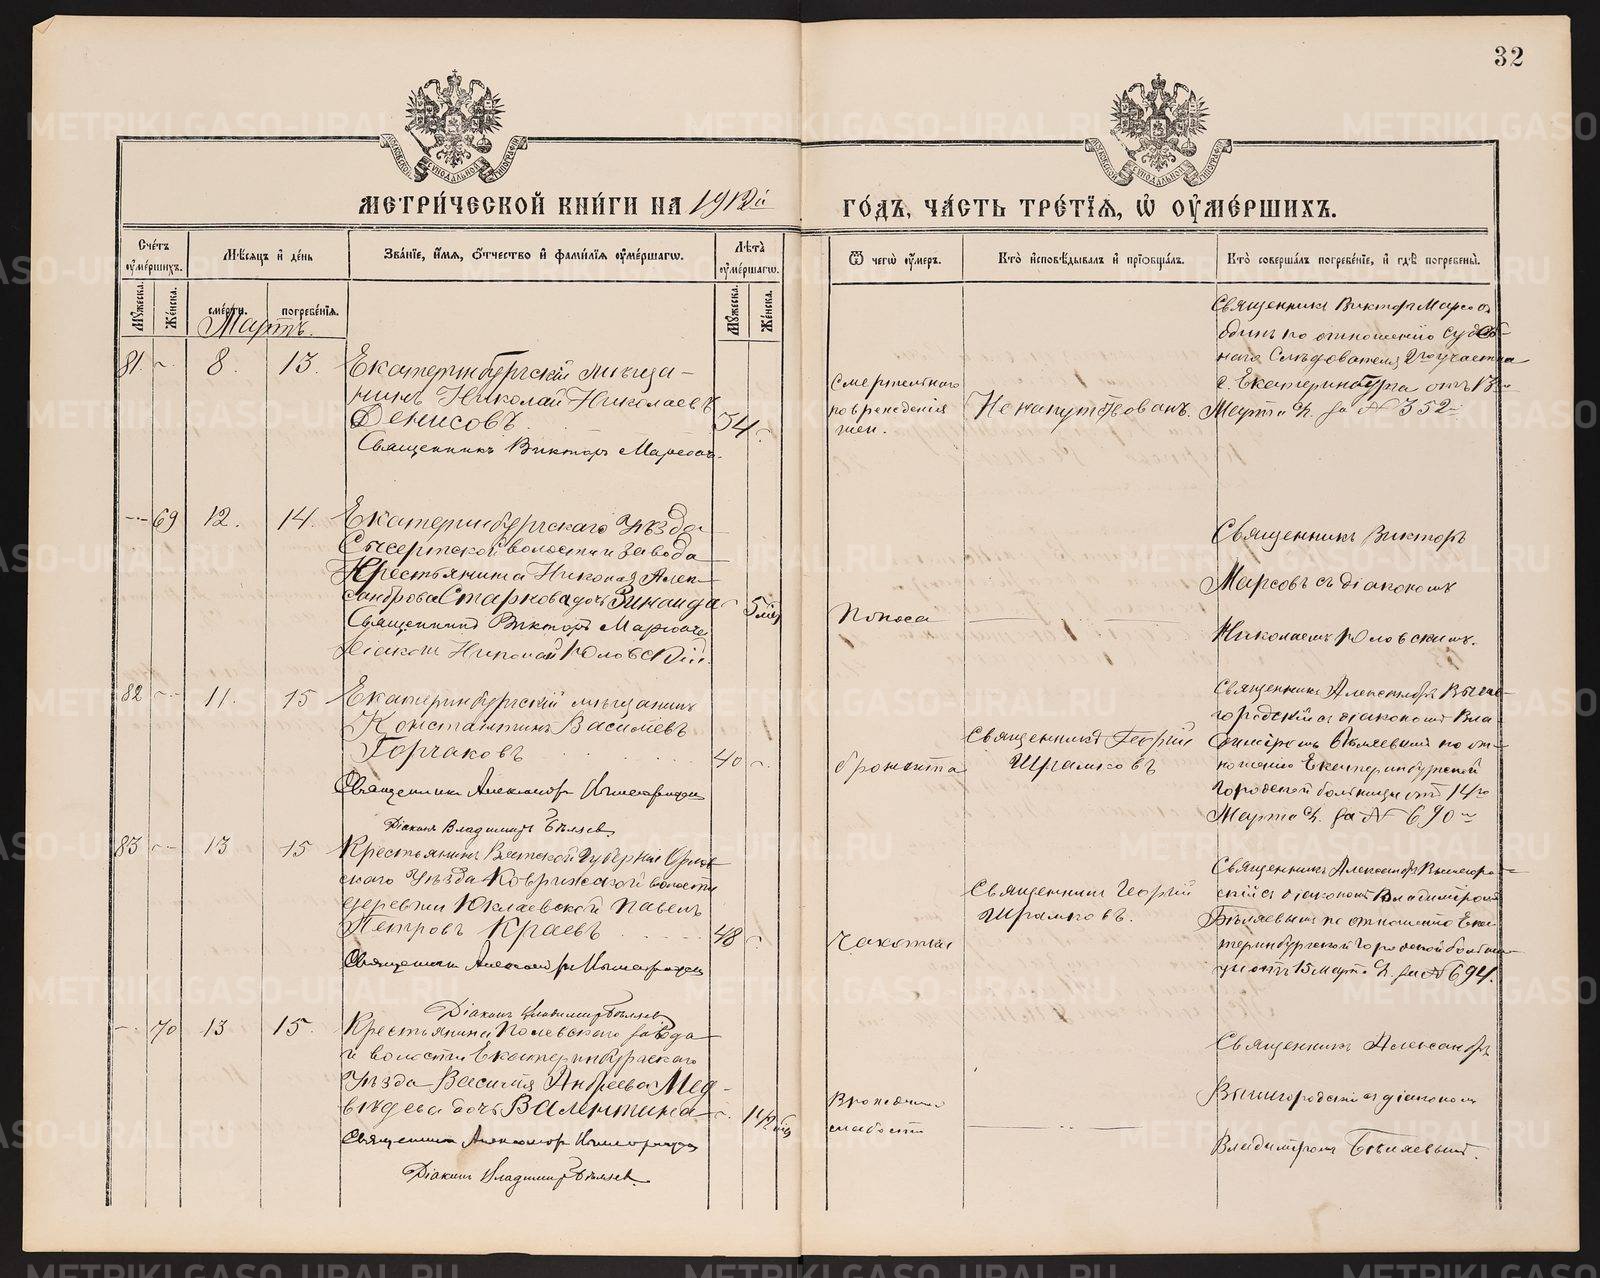 32
МЕТРИ́ЧЕСКОЙ КНИ́ГИ НА 1912й ГО́ДЪ, ЧА́СТЬ ТРЕ́ТЇѦ, Ѡ҆ ОУ҆МЕ́РШИХЪ.
Сче́тъ оу҆ме́ршихъ.
Мѣ́сѧцъ и҆ де́нь
Зва́нїе, и҆́мѧ, ѻ҆́тчество и҆ фами́лїѧ оу҆ме́ршагѡ.
Лѣ́та оу҆ме́ршагѡ.
Ѿ чегѡ̀ оу҆́меръ.
Кто̀ и҆сповѣ́дывалъ и҆ прїѡбща́лъ.
Кто̀ соверша́лъ погребе́нїе, и҆ гдѣ̀ погребены̀.
Мꙋ́жеска.
Же́нска.
сме́рти.
погребе́нїѧ.
Мꙋ́жеска.
Же́нска.
Мартъ.
81.
8.
13.
Екатеринбургскій мѣща-
нинъ Николай Николаевъ
Денисовъ
54
Священникъ Викторъ Марсовъ.
Смертельнаго
поврежденія
шеи.
Не напутствованъ.
Священникъ Викторъ Марсовъ
одинъ по отношенію Судеб-
наго Слѣдователя 2го участка
г. Екатеринбурга отъ 13го
Марта с. г. за № 352
69
12.
14.
Екатеринбургскаго Уѣзда
Сысертской волости и завода
Крестьянина Николая Алек-
сандрова Старкова дочь Зинаида
5 мѣс
Священникъ Викторъ Марсовъ
Діаконъ Николай Юловскій.
Поноса
Священникъ Викторъ
Марсовъ съ діакономъ
Николаемъ Юловскимъ.
82
11.
15
Екатеринбургскій мѣщанинъ
Константинъ Васильевъ
Горчаковъ
40
Священникъ Александръ Вышегородскій
Діаконъ Владимиръ Бѣляевъ.
бронхита
Священникъ Георгій
Шрамковъ
Священникъ Александръ Выше-
городскій съ діакономъ Вла-
диміромъ Бѣляевымъ по от-
ношенію Екатеринбургской
Городской больницы отъ 14го
Марта с. г. за № 690
83
13
15
Крестьянинъ Вятской губерніи Орлов-
скаго Уѣзда Коврижской волости
деревни Юклаевской Павелъ
Петровъ Краевъ
48
Священникъ Александръ Вышегородскій
Діаконъ Владимиръ Бѣляевъ
Чахотки
Священникъ Георгій
Шрамковъ.
Священникъ Александръ Вышегоро-
скій съ діакономъ Владиміромъ
Бѣляевымъ по отношенію Ека-
теринбургской Городской больни-
цы отъ 15 Марта с. г. за № 694.
70
13
15.
Крестьянина Полевскаго завода
и волости Екатеринбургскаго
Уѣзда Василія Андреева Мед-
вѣдева дочь Валентина
1 1/2 мѣс
Священникъ Александръ Вышегородскій
Діаконъ Владимиръ Бѣляевъ.
Врожденной
слабости
Священникъ Александръ
Вышегородскій съ діакономъ
Владиміромъ Бѣляевымъ.
METRIKI.GASO-URAL.RU